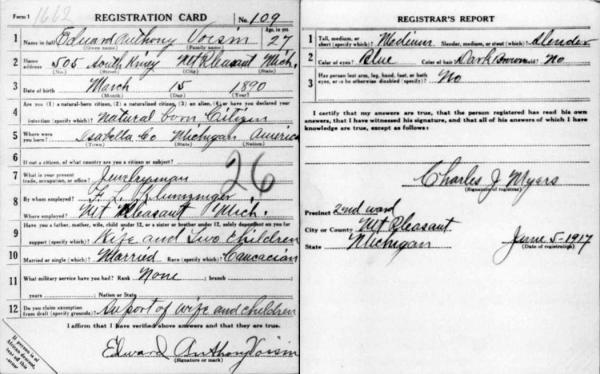 Form 1 1662 REGISTRATION CARD No. 109
1 Name in full Edward Anthony Voisin Age, in yrs. 27
(Given name) (Family name)
2 Home address 505 South Kinney Mt Pleasant Mich.
(No.) (Street) (City) (State)
3 Date of birth March 15 1890
(Month) (Day) (Year)
4 Are you (1) a natural-born citizen, (2) a naturalized citizen, (3) an alien, (4) or have you declared your
intention (specify which)? Natural born Citizen
5 Where were you born? Isabella Co Michigan America
(Town) (State) (Nation)
6 If not a citizen, of what country are you a citizen or subject?
7 What is your present trade, occupation, or office? 26
8 By whom employed? F. L.
Where employed? Mt Pleasant Mich.
9 Have you a father, mother, wife, child under 12, or a sister or brother under 12, solely dependent on you for
support (specify which)? Wife and two children
10 Married or single (which)? Married Race (specify which)? Caucasian
11 What military service have you had? Rank None ; branch
years ; Nation or State
12 Do you claim exemption from draft (specify grounds)? Suport of wife and children
I affirm that I have verified above answers and that they are true.
Edward Anthony Voisin
(Signature or mark)
If person is of African descent, tear off this corner
REGISTRAR'S REPORT
1 Tall, medium, or short (specify which)? Medium Slender, medium, or stout (which)? Slender
2 Color of eyes? Blue Color of hair? Dark Brown Bald? No
3 Has person lost arm, leg, hand, foot, or both eyes, or is he otherwise disabled (specify)? No
I certify that my answers are true, that the person registered has read his own
answers, that I have witnessed his signature, and that all of his answers of which I have
knowledge are true, except as follows:
Charles J Myers
(Signature of registrar)
Precinct 2nd ward
City or County Mt Pleasant
State Michigan June 5-1917
(Date of registration)